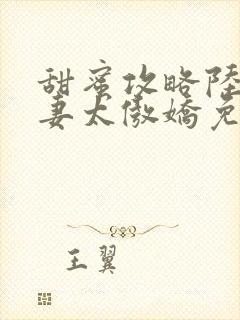 甜蜜攻略陸
妻太傲嬌免
王翼